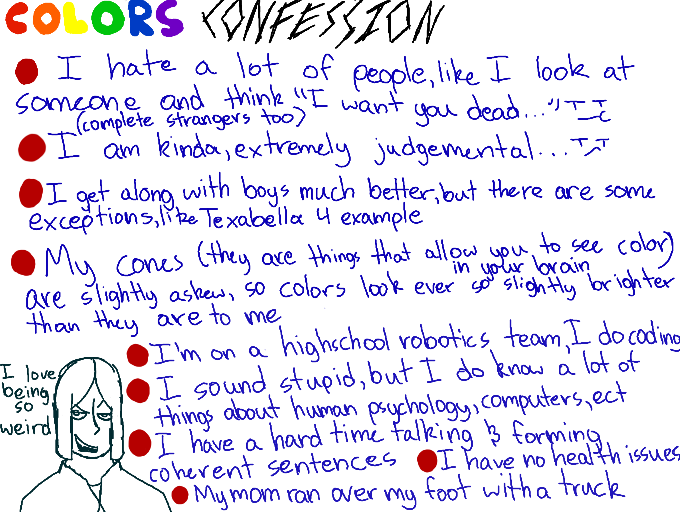 COLORS CONFESSION
I hate a lot of people, like I look at
someone and think "I want you dead..."
(complete strangers too)
I am kinda, extremely judgemental...
I get along with boys much better, but there are some
exceptions, like Texabella 4 example
My cones (they are things that allow you to see color)
in your brain
are slightly askew, so colors look ever so slightly brighter
than they are to me
I'm on a highschool robotics team, I do coding
I sound stupid, but I do know a lot of
things about human psychology, computers, ect
I have a hard time talking & forming
coherent sentences
I have no health issues
My mom ran over my foot with a truck
I love
being
so
weird